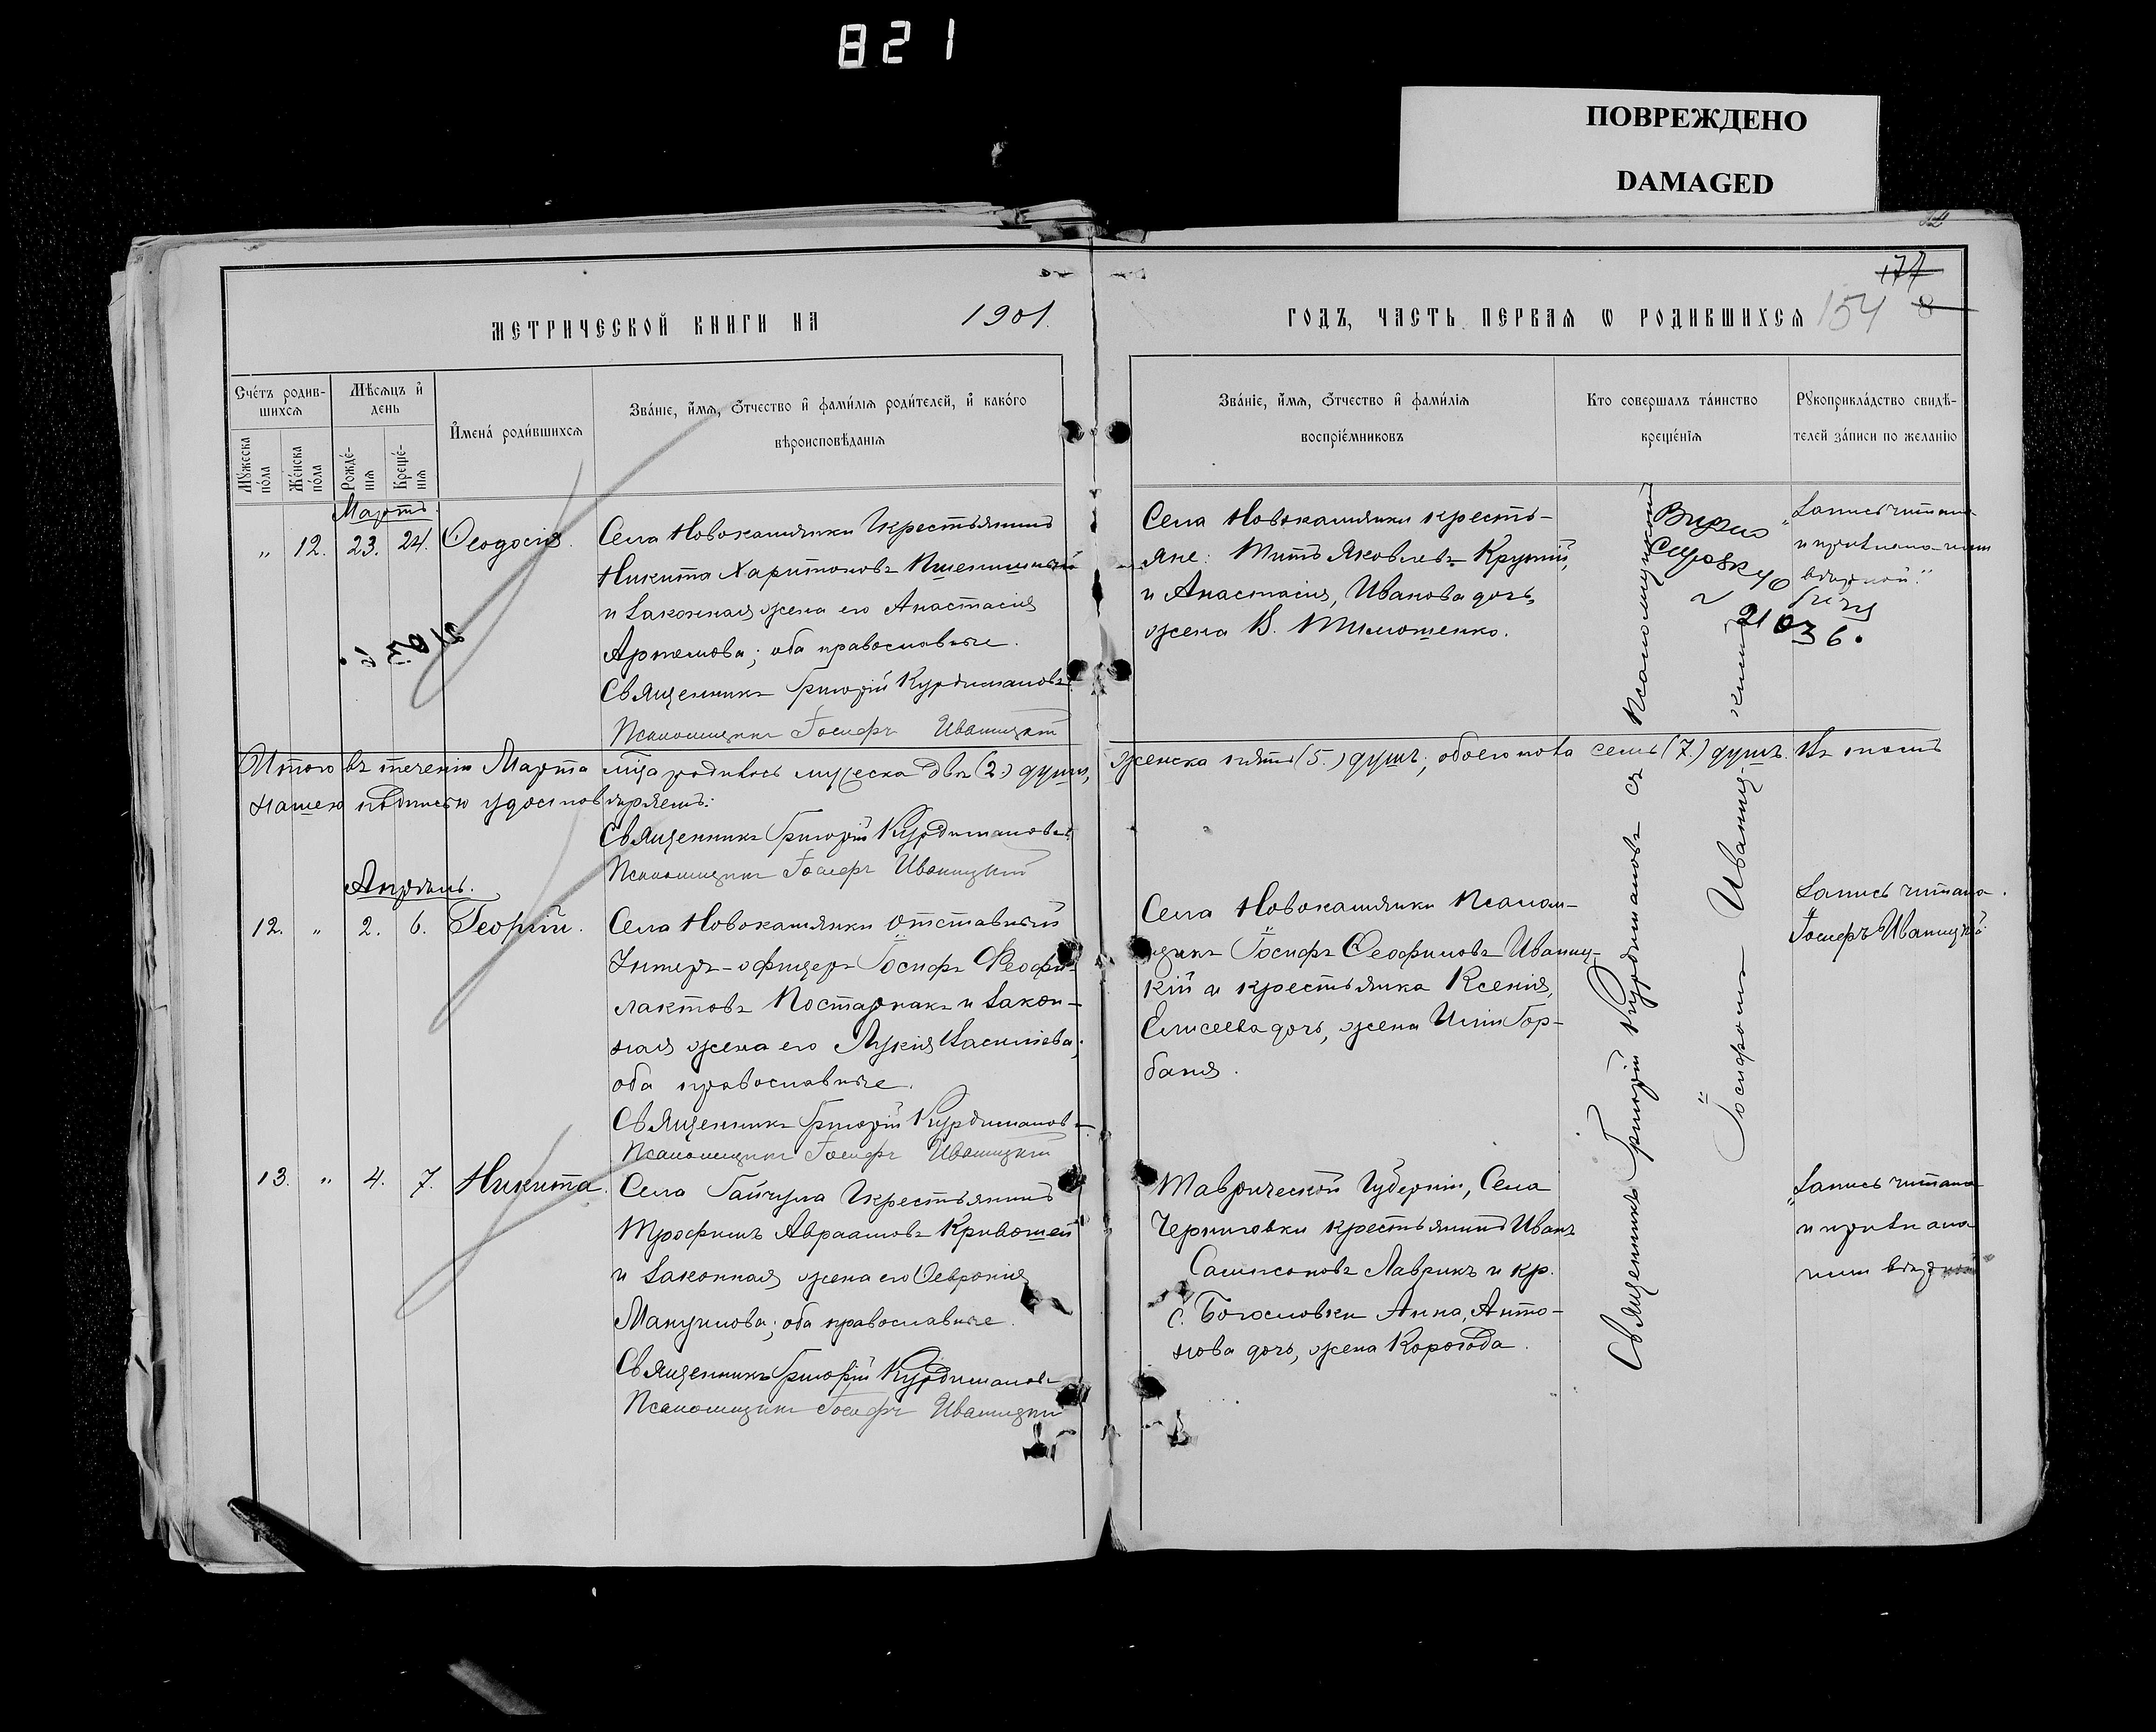 821
ПОВРЕЖДЕНО
DAMAGED
177
154 8
МЕТРИЧЕСКОЙ КНИГИ НА 1901.
ГОДЪ, ЧАСТЬ ПЕРВАЯ Ѡ РОДИВШИХСЯ
Счéтъ родив-
шихся
Мѣсяцъ и҆
день
Мꙋжеска
по́ла
Же́нска
по́ла
Рожде́-
нія
Креще́-
нія
И҆мена́ роди́вшихся
Зва́ніе, и҆́мя, ѻ҆́тчество и҆ фами́лія роди́телей, и҆ како́го
вѣроисповѣ́данія
Зва́ніе, и҆́мя, ѻ҆́тчество и҆ фами́лія
воспріе́мниковъ
Кто совершалъ та́инство
креще́нія
Рꙋкоприкла́дство свидѣ́-
телей за́писи по жела́нію
Мартъ.
" 12. 23. 24. Ѳеодосія.
Села Новокамянки Крестьянинъ
Никита Харитоновъ Пшеничный
и законная жена его Анастасія
Артемова; оба православные.
Священникъ Григорій Курдимановъ
Псаломщикъ Іосифъ Иваницкій
Села Новокаманки кресть-
яне: Титъ Яковлевъ Крутій,
и Анастасія, Иванова дочь,
жена В. Тимошенко.
Выдано
справку
2/03 6.
Запись читана
2/03 6.
Итого въ теченіи Марта м-ца родилось мужеска двѣ (2.) души,
женска пять (5.) душъ; обоего пола семь (7.) душъ. Въ томъ
нашею подписью удостовѣряемъ:
Священникъ Григорій Курдимановъ
Псаломщикъ Іосифъ Иваницкій
Апрѣль.
12. " 2. 6. Георгій.
Села Новокамянки отставный
Унтеръ-офицеръ Іосифъ Феофи-
лактовъ Постарнакъ и закон-
ная жена его Лукія Васильева;
оба православные.
Священникъ Григорій Курдимановъ
Псаломщикъ Іосифъ Иваницкій
Села Новокамянки Псалом-
щикъ Іосифъ Ѳеофиловъ Иваниц-
кій и крестьянка Ксенія,
Елисеева дочь, жена Иліи Гор-
баня.
Запись читана.
Іосифъ Иваницкій
13. " 4. 7. Никита.
Села Гайчула Крестьянинъ
Трофимъ Авраамовъ Кривошей
и законная жена его Ѳевронія
Мануилова; оба православные.
Священникъ Григорій Курдимановъ
Псаломщикъ Іосифъ Иваницкій
Таврической Губерніи, Села
Черниговки крестьянинъ Иванъ
Сампсоновъ Лаврикъ и кр.
с. Богословки Анна, Анто-
нова дочь, жена Корогода.
Запись читана
и провѣрена
Священникъ Григорій Курдимановъ съ Псаломщикомъ
Іосифомъ Иваницкимъ